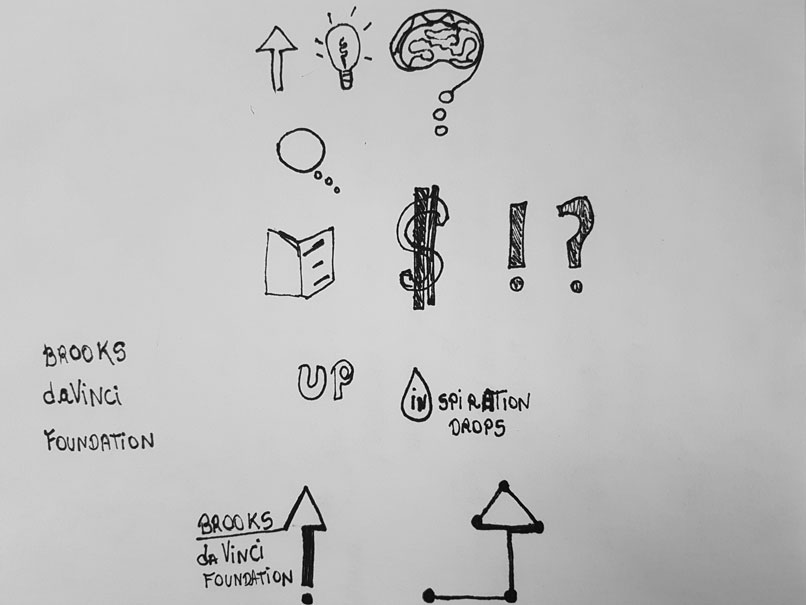 $ ! ?
BROOKS
daVinci
FOUNDATION
UP
INSPIRATION
DROPS
BROOKS
daVINCI
FOUNDATION